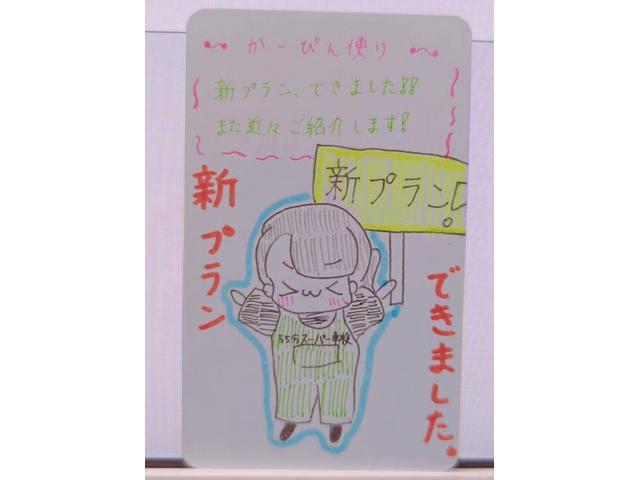 かーぴん便り
新プラン、できました!!
また追々ご紹介します!
新プラン!
新プラン
できました。
55分スーパー車検